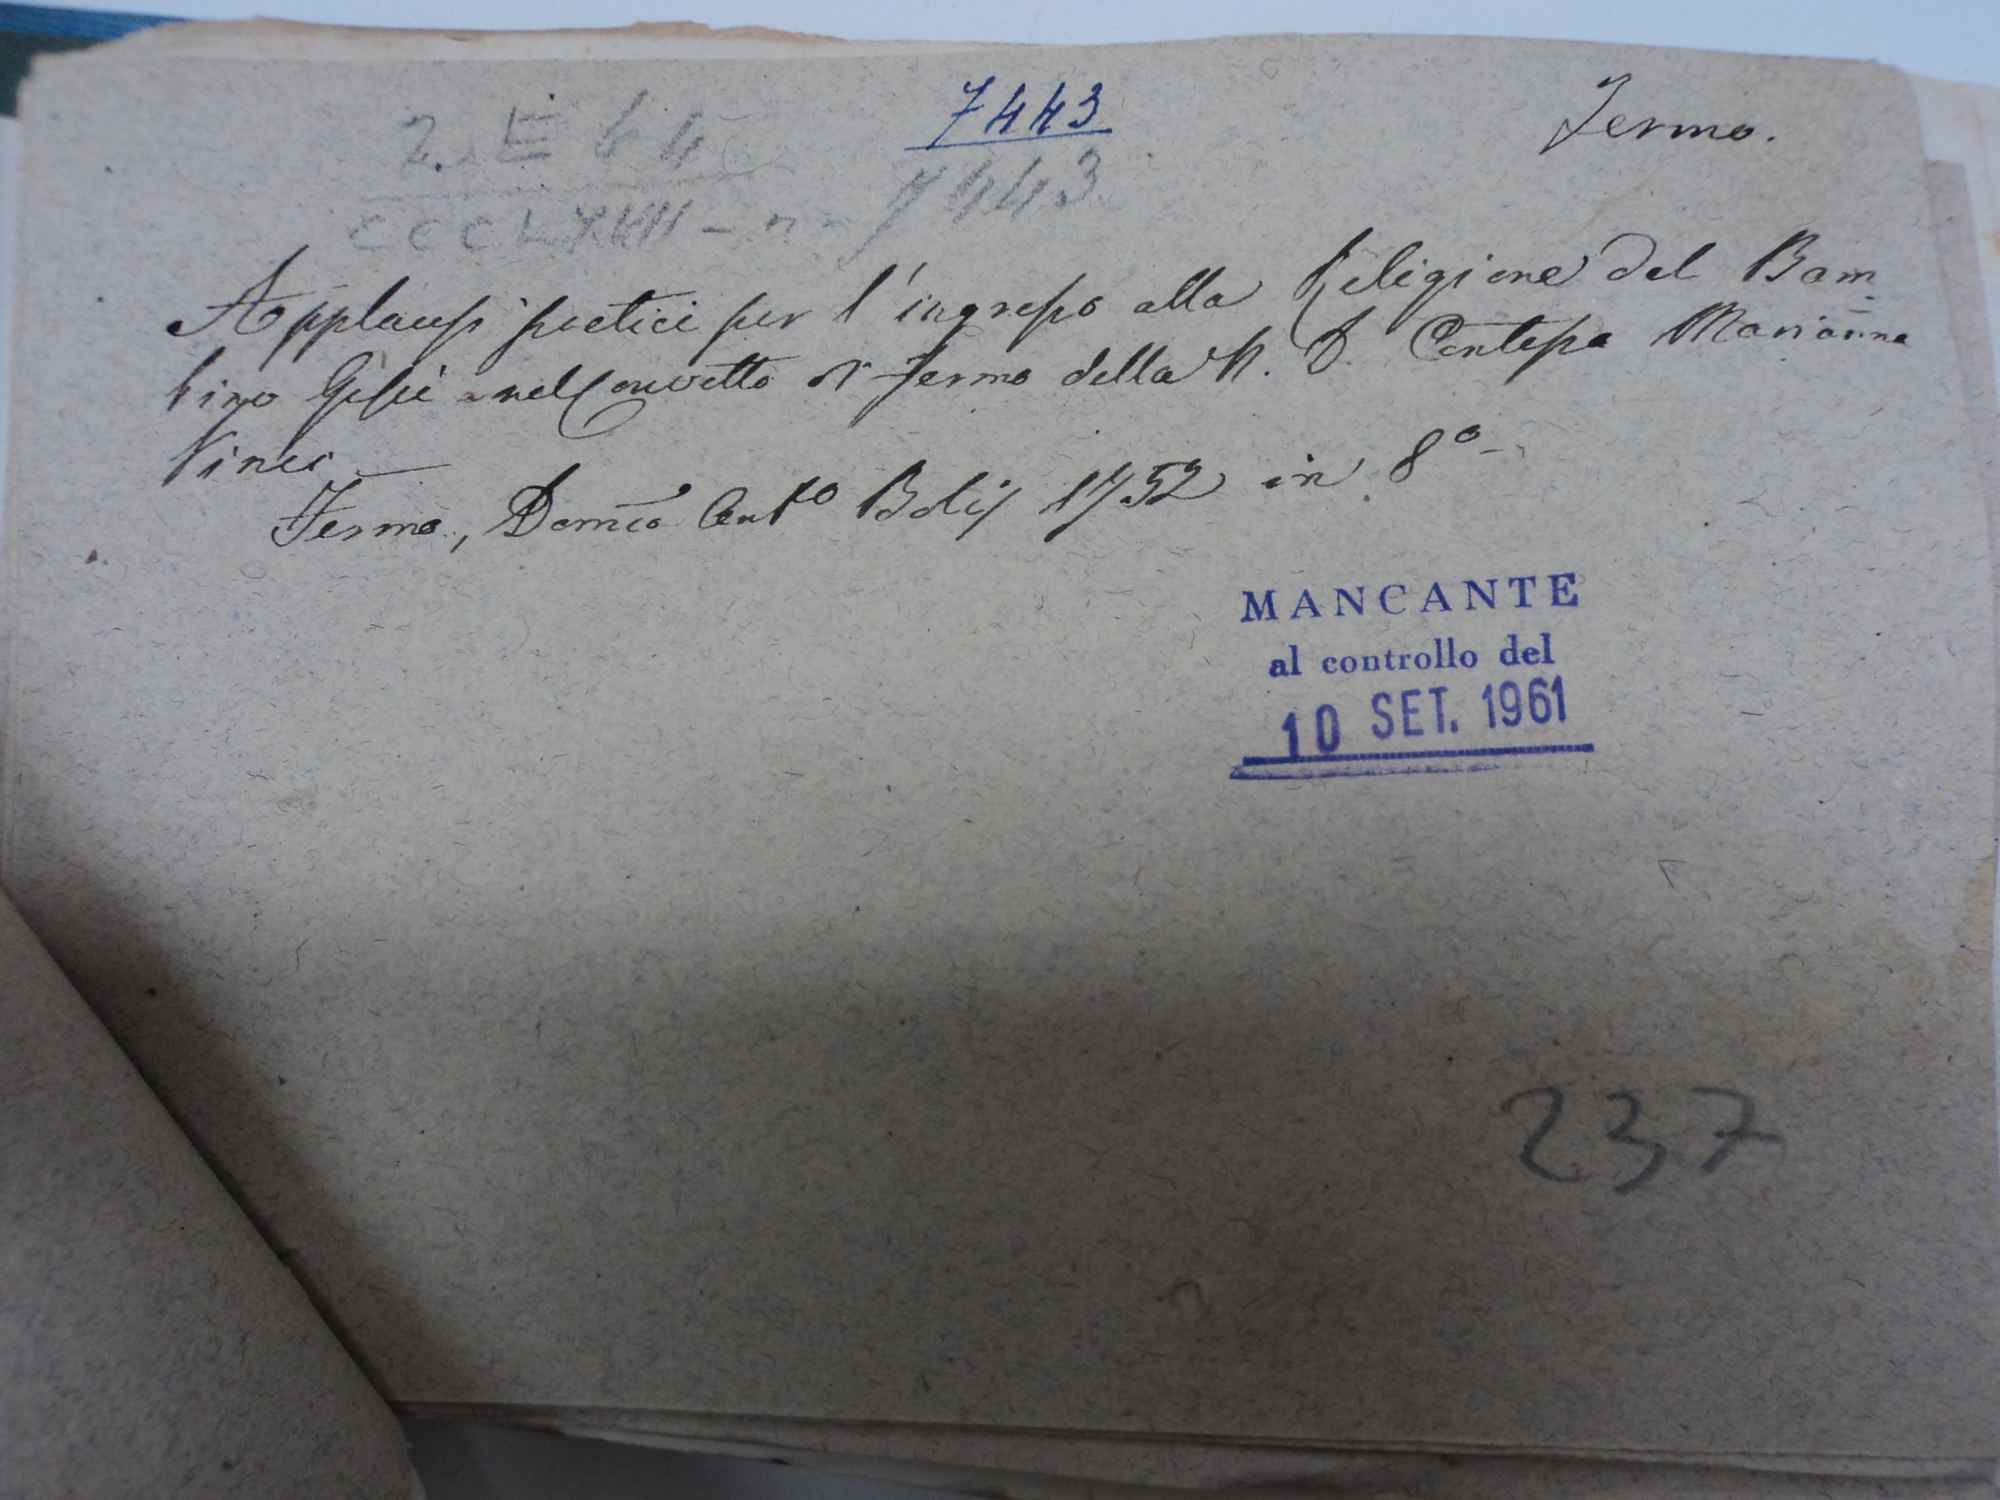 7443
Fermo.
2. E 64
CCCLXXIII - n - 7443
Applausi poetici per l'ingresso alla Religione del Bam
bino Gesù nel Convetto di Fermo della N. D. Contessa Marianna
Vinci
Fermo, Domco Anto Bolis 1752 in 8°
MANCANTE
al controllo del
10 SET. 1961
237